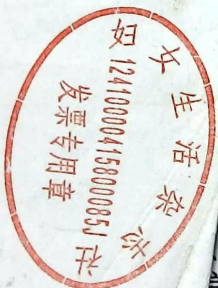 妇女生活杂志社
12410000415800085J
发票专用章